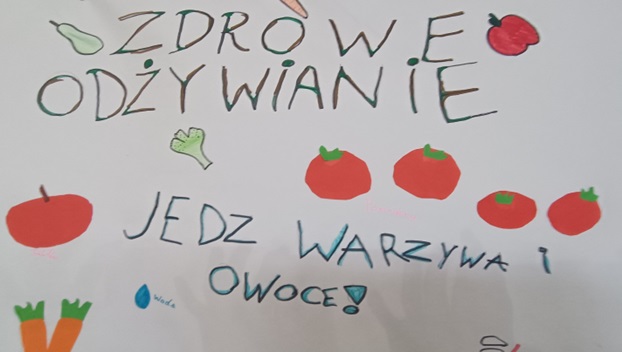 ZDROWE
ODŻYWIANIE
JEDZ WARZYWA I
OWOCE!
Woda